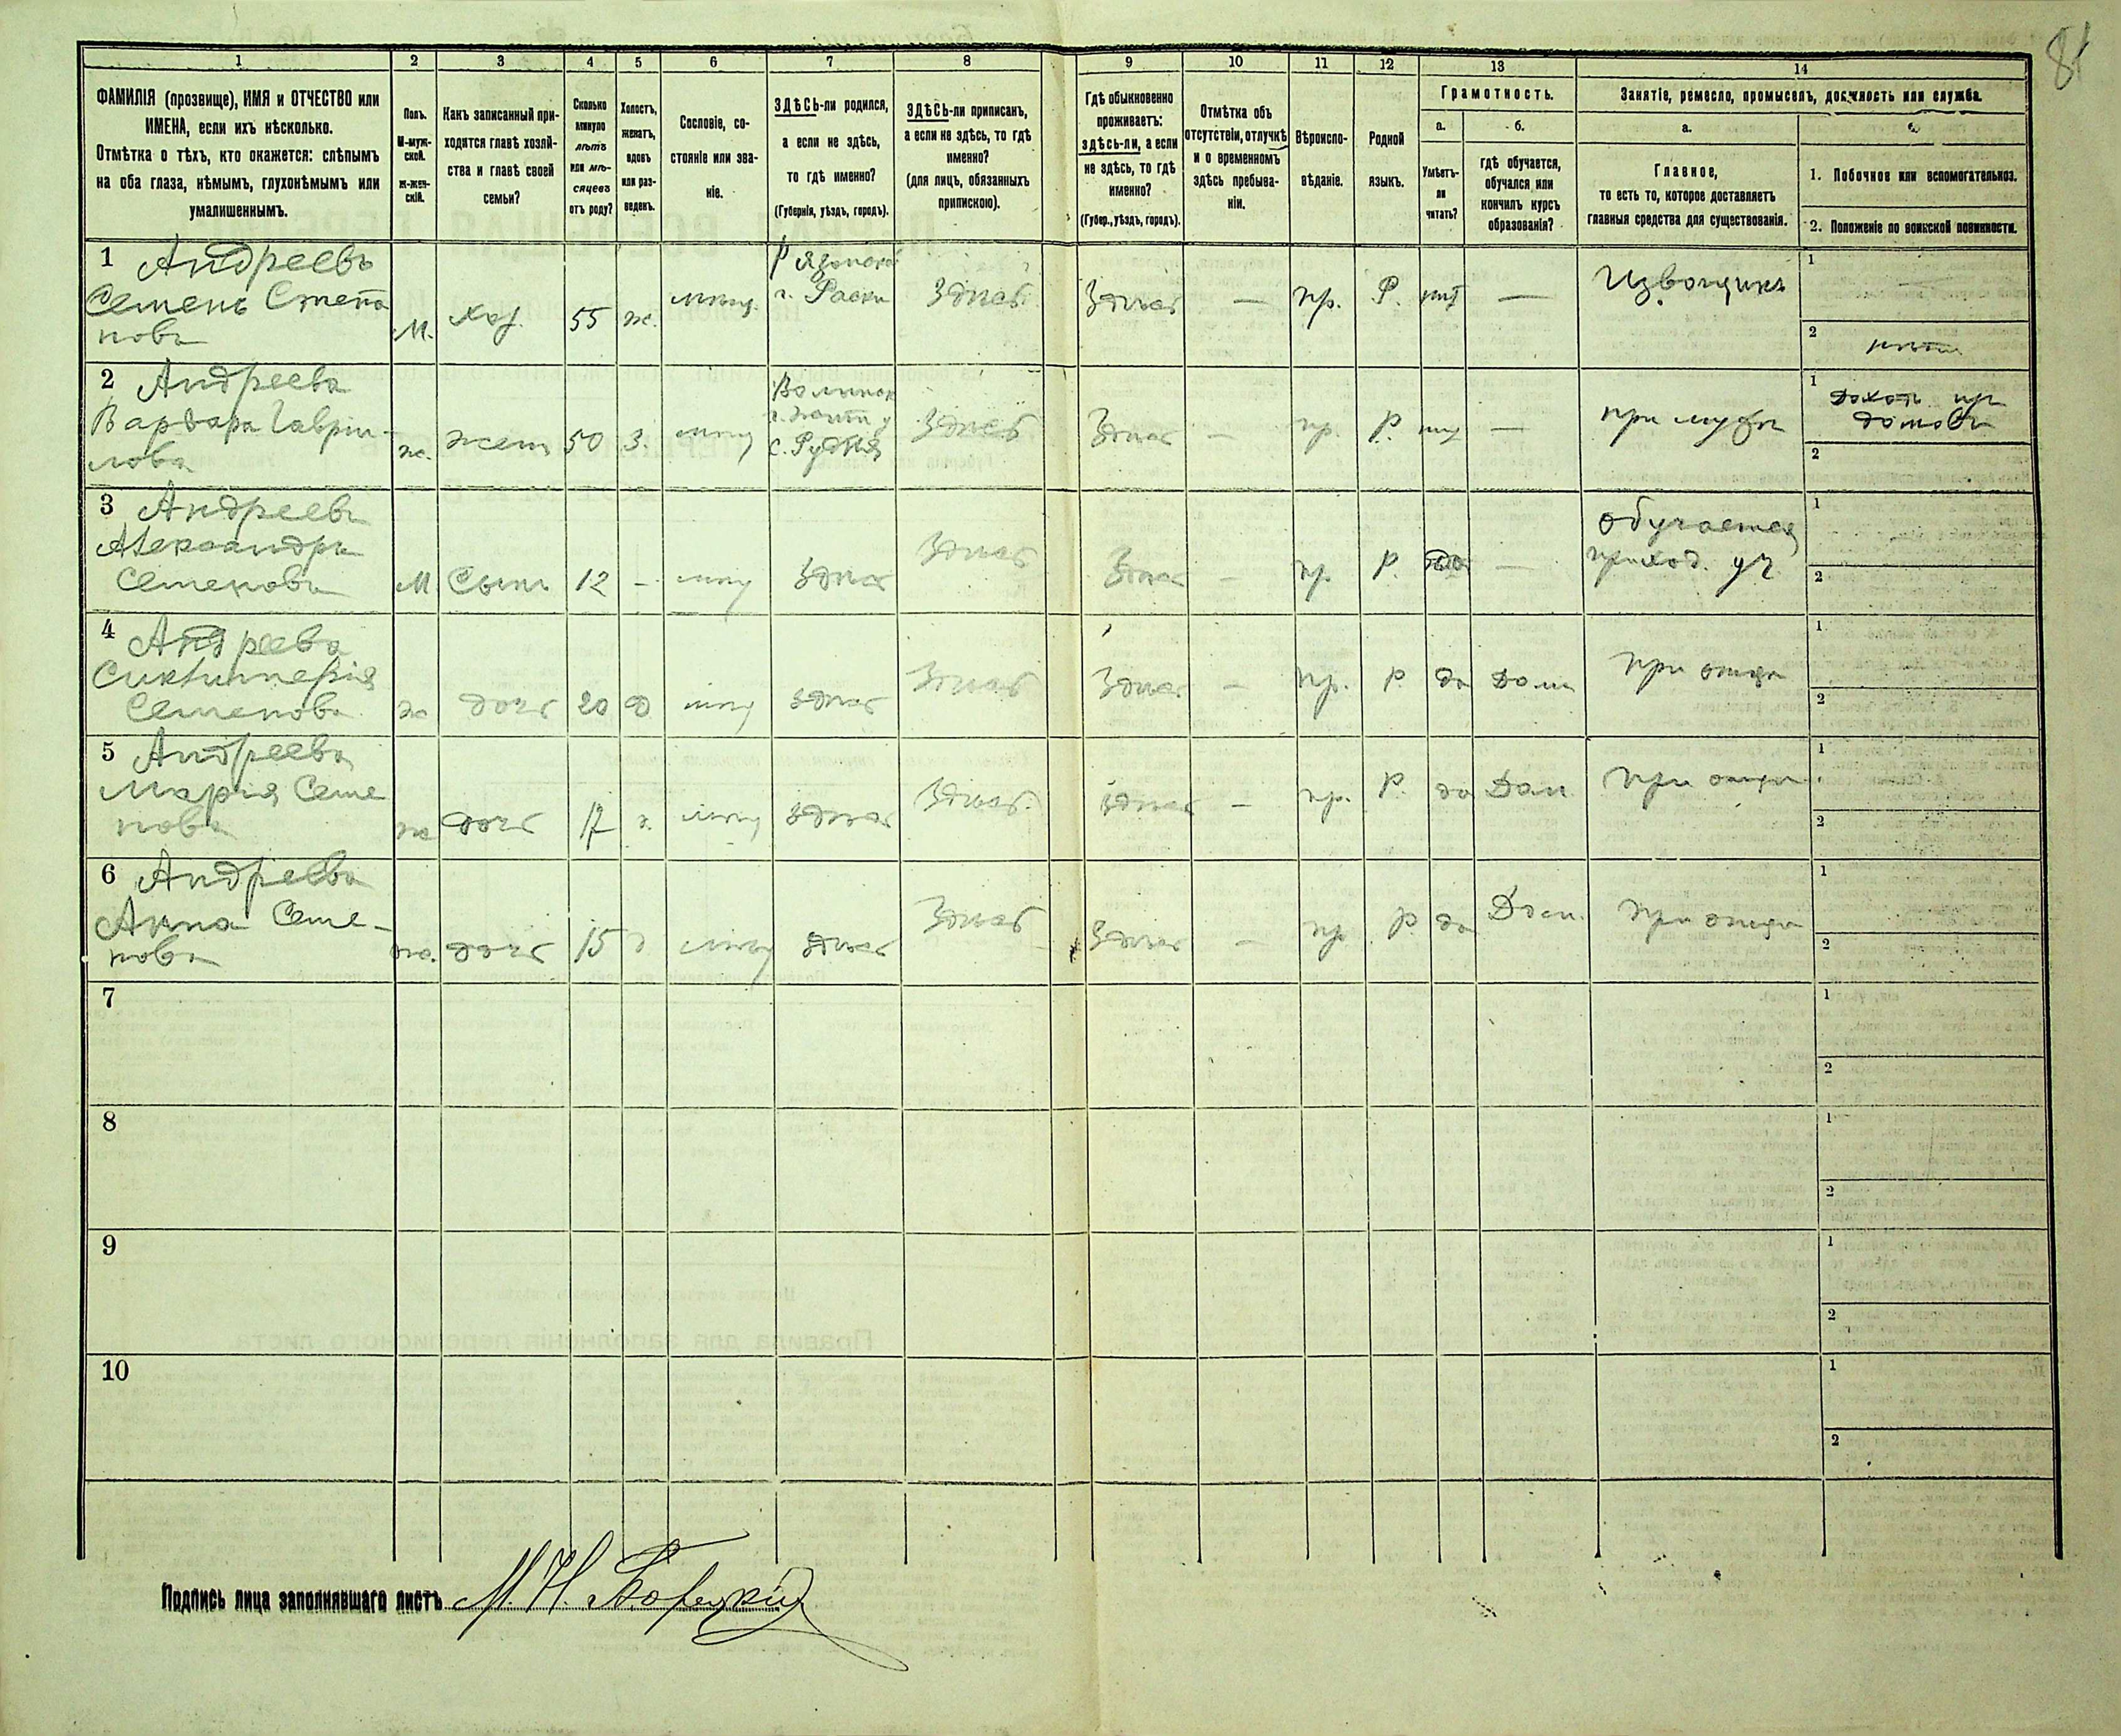 81
1 2 3 4 5 6 7 8 9 10 11 12 13 14
ФАМИЛІЯ (прозвище), ИМЯ и ОТЧЕСТВО или
ИМЕНА, если ихъ нѣсколько.
Отмѣтка о тѣхъ, кто окажется: слѣпымъ
на оба глаза, нѣмымъ, глухонѣмымъ или
умалишеннымъ.
Полъ.
М-муж-
ской.
ж-жен-
скій.
Какъ записанный при-
ходится главѣ хозяй-
ства и главѣ своей
семьи?
Сколько
минуло
лѣтъ
или мѣ-
сяцевъ
отъ роду?
Холостъ,
женатъ,
вдовъ
или раз-
веденъ.
Сословіе, со-
стояніе или зва-
ніе.
ЗДѢСЬ-ли родился,
а если не здѣсь,
то гдѣ именно?
(Губернія, уѣздъ, городъ).
ЗДѢСЬ-ли приписанъ,
а если не здѣсь, то гдѣ
именно?
(для лицъ, обязанныхъ
припискою).
Гдѣ обыкновенно
проживаетъ:
здѣсь-ли, а если
не здѣсь, то гдѣ
именно?
(Губер., уѣздъ, городъ).
Отмѣтка объ
отсутствіи, отлучкѣ
и о временномъ
здѣсь пребыва-
ніи.
Вѣроиспо-
вѣданіе.
Родной
языкъ.
Грамотность.
а.
Умѣетъ-
ли
читать?
б.
гдѣ обучается,
обучался или
кончилъ курсъ
образованія?
Занятіе, ремесло, промыселъ, должность или служба.
а.
Главное,
то есть то, которое доставляетъ
главныя средства для существованія.
1. Побочное или вспомогательное.
2. Положеніе по воинской повинности.
1 Андреевъ
Семенъ Степа
новъ
М. хоз. 55 ж. г. Здѣсь Здѣсь — пр. Р. нѣт — Извощикъ
1 —
2
2 Андреева
Варвара Гаврил-
лова
ж. жена 50 з. с. Рудня Здѣсь Здѣсь — пр. Р. — при мужѣ
1
2
3 Андреевъ
Александръ
Семеновъ
М Сынъ 12 - здѣсь Здѣсь Здѣсь — пр. Р. да —
обучается
приход. уч
1
2
4 Андреева
Семенова
ж дочь 20 д здѣсь Здѣсь Здѣсь — пр. Р. да Дома при отцѣ
1
2
5 Андреева
Марія Семе
нова
ж дочь 17 д. здѣсь Здѣсь здѣсь — пр. Р. да Дом при отцѣ
1
2
6 Андреева
Анна Семе-
нова
ж. дочь 15 д здѣсь Здѣсь Здѣсь — пр Р. да Дом. при отцѣ
1
2
7 1
2
8 1
2
9 1
2
10 1
2
Подпись лица заполнявшаго листъ М. Н. Борецкій